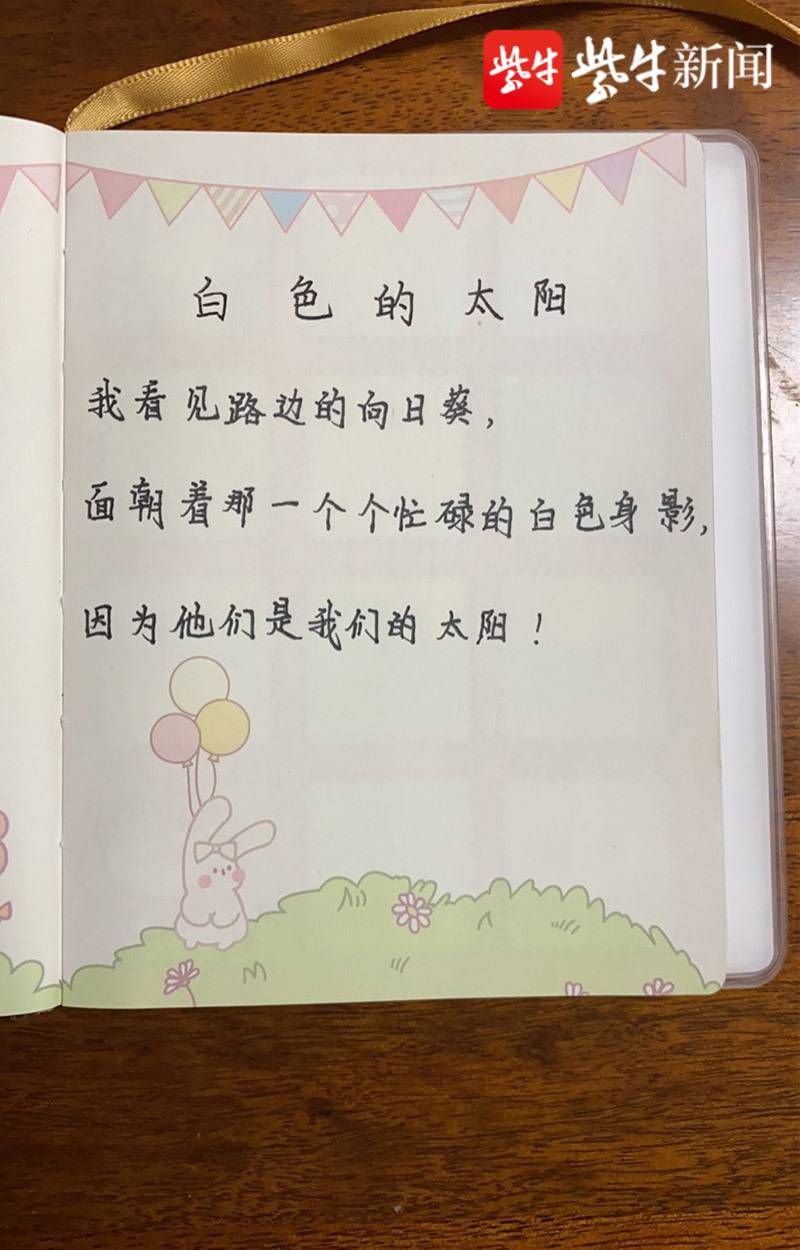 紫牛 紫牛新闻
白色的太阳
我看见路边的向日葵，
面朝着那一个个忙碌的白色身影，
因为他们是我们的太阳！